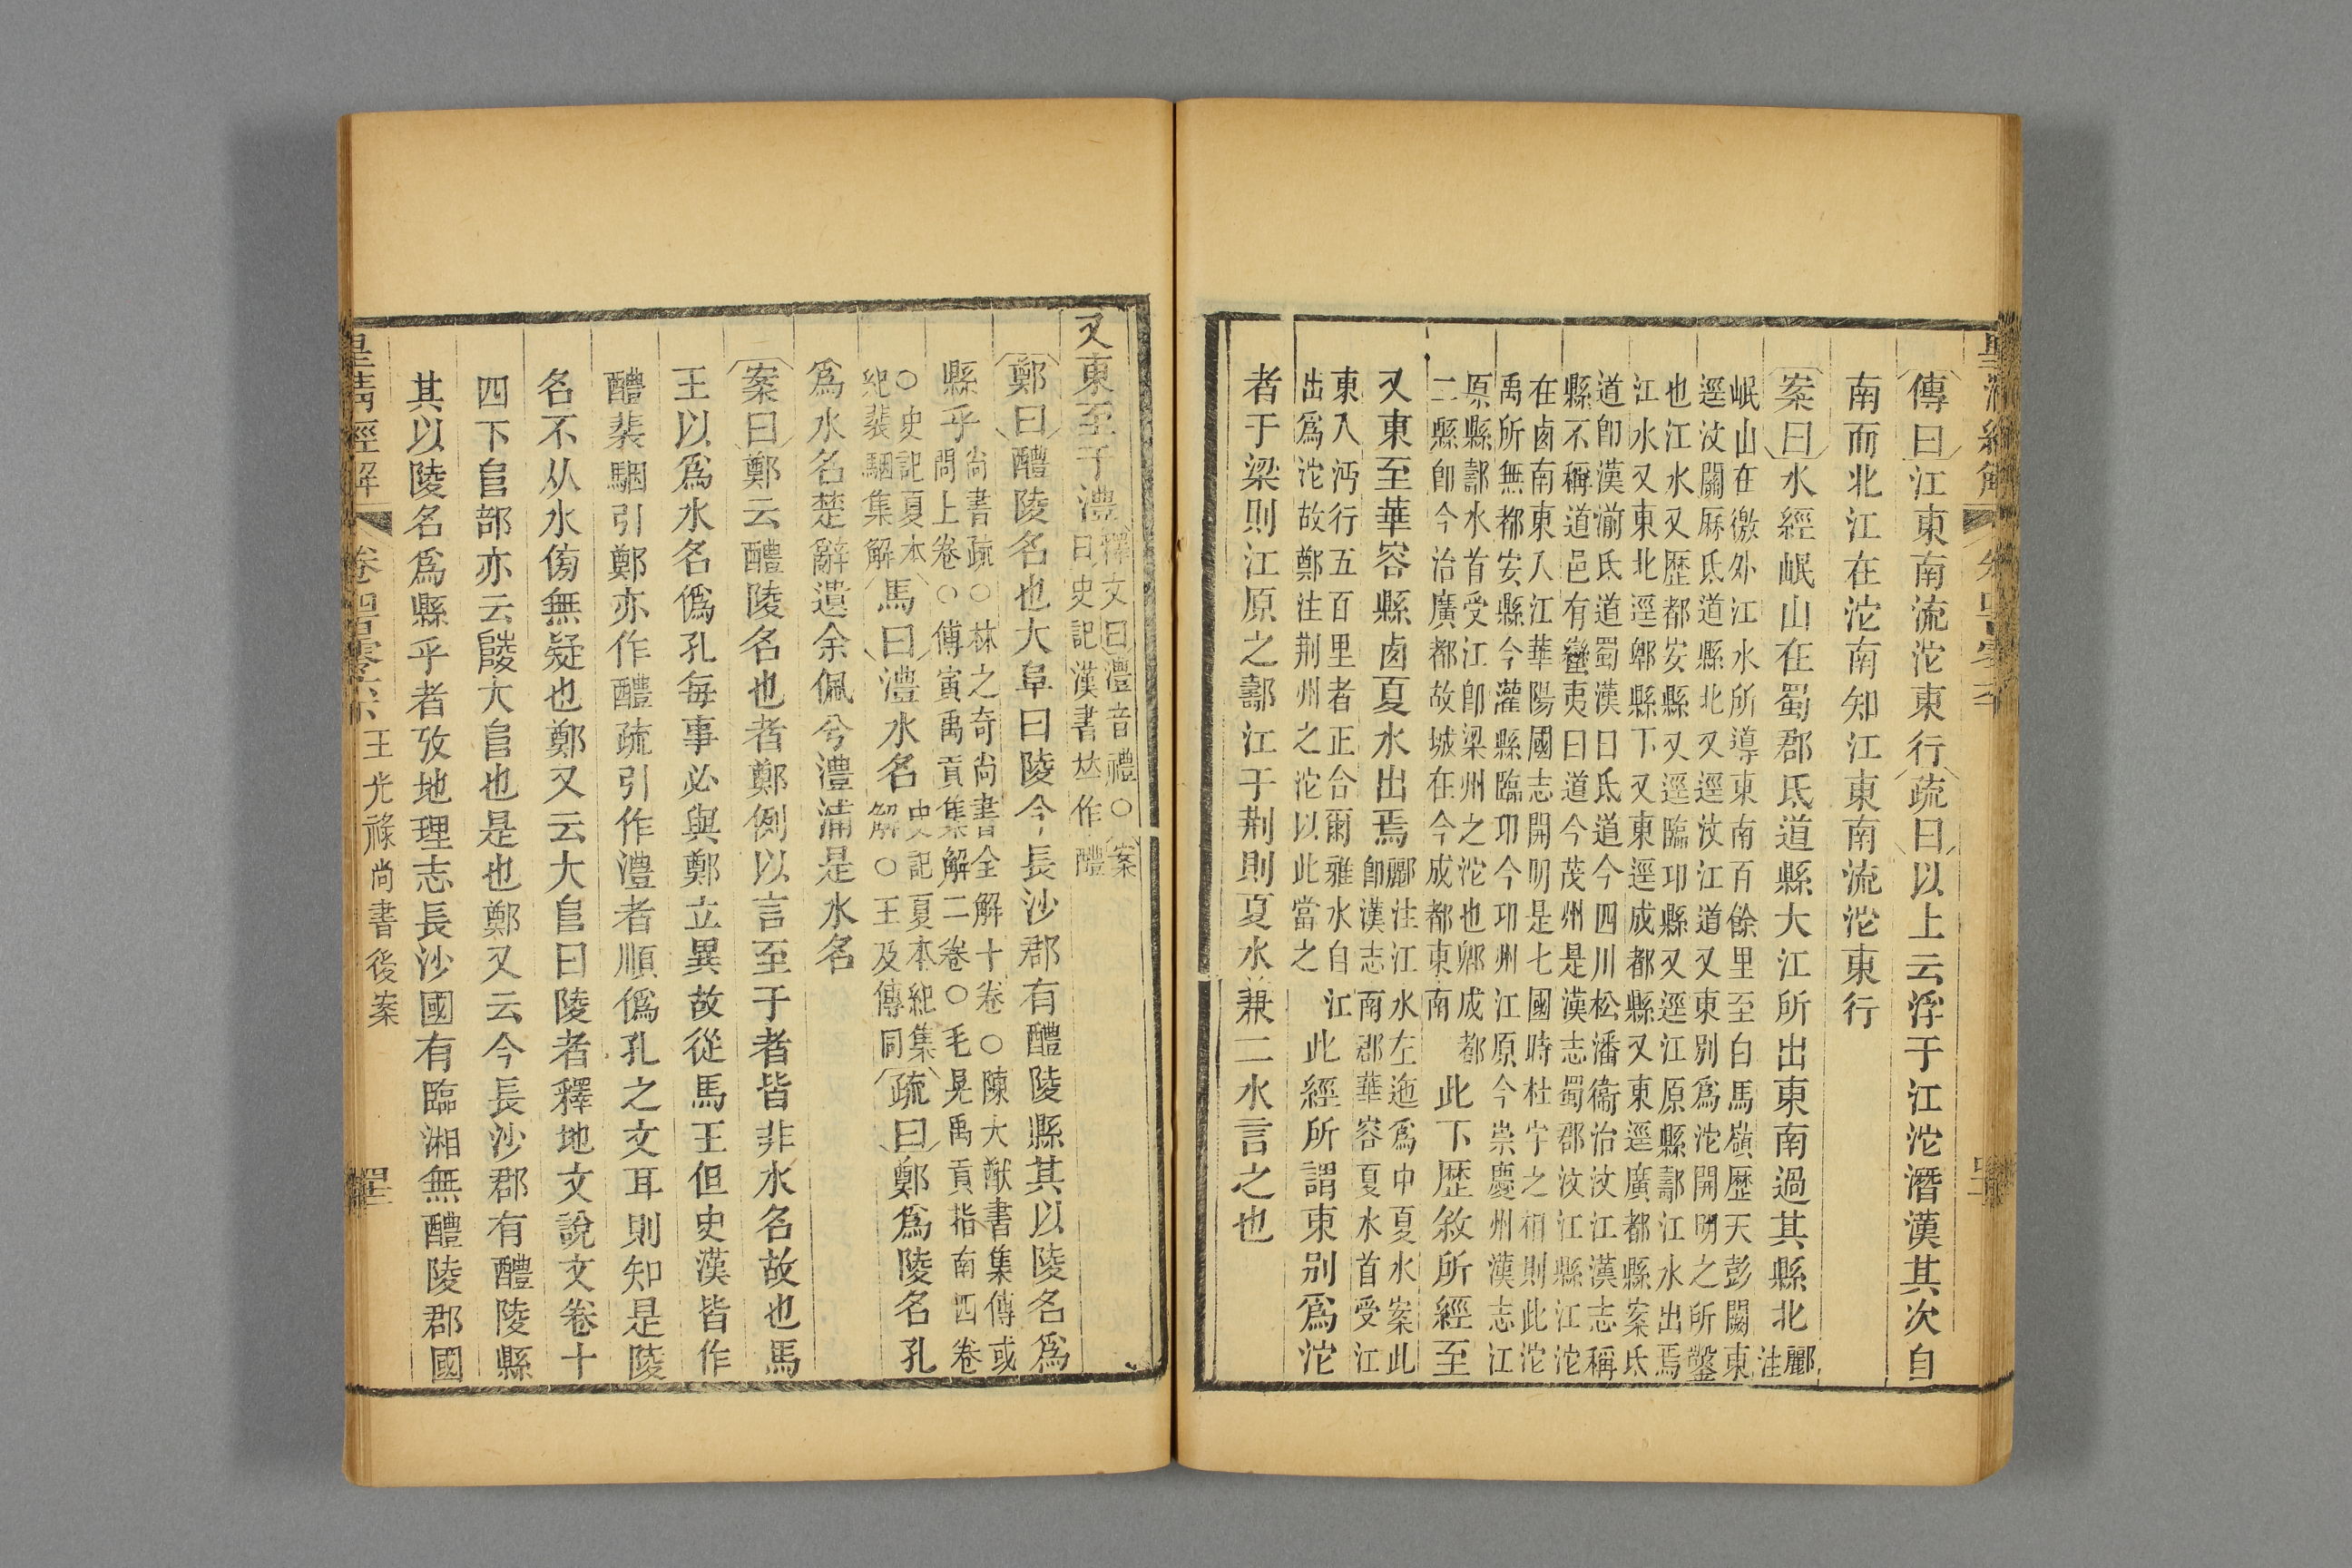 傳曰江東南流沱東行疏曰以上云浮于江沱潛漢其次自
南而北江在沱南知江東南流沱東行
案曰水經岷山在蜀郡氐道縣大江所出東南過其縣北酈注
岷山在徼外江水所導東南百餘里至白馬嶺歷天彭闕東
逕汶關厤氐道縣北又逕汶江道又東別爲沱開明之所鑿
也江水又歷都安縣又逕臨邛縣又逕江原縣𨞪江水出焉
江水又東北逕郫縣下又東逕成都縣又東逕廣都縣案氐
道卽漢湔氐道蜀漢曰氐道今四川松潘衞治汶江漢志稱
縣不稱道邑有蠻夷曰道今茂州是漢志蜀郡汶江縣江沱
在卤南東入江華陽國志開明是七國時杜宇之相則此沱
禹所無都安縣今灌縣臨邛今邛州江原今崇慶州漢志江
原縣𨞪水首受江卽梁州之沱也郫成都
二縣卽今治廣都故城在今成都東南此下歷敘所經至
又東至華容縣卤夏水出焉酈注江水左迤爲中夏水案此
卽漢志南郡華容夏水首受江
東入沔行五百里者正合爾雅水自江
出爲沱故鄭注荆州之沱以此當之此經所謂東別爲沱
者于梁則江原之𨞪江于荆則夏水兼二水言之也
又東至于澧釋文曰澧音禮○案
曰史記漢書𠀤作醴
鄭曰醴陵名也大阜曰陵今長沙郡有醴陵縣其以陵名爲
縣乎尚書疏○林之奇尚書全解十卷○陳大猷書集傳或
問上卷○傅寅禹貢集解二卷○毛晃禹貢指南四卷
○史記夏本
紀裴駰集解馬曰澧水名史記夏本紀集
解○王及傳同疏曰鄭爲陵名孔
爲水名楚辭遺余佩兮澧浦是水名
案曰鄭云醴陵名也者鄭例以言至于者皆非水名故也馬
王以爲水名僞孔每事必與鄭立異故從馬王但史漢皆作
醴裴駰引鄭亦作醴疏引作澧者順僞孔之文耳則知是陵
名不从水傍無疑也鄭又云大𨸏曰陵者釋地文說文卷十
四下𨸏部亦云陵大𨸏也是也鄭又云今長沙郡有醴陵縣
其以陵名爲縣乎者攷地理志長沙國有臨湘無醴陵郡國
皇清經解 卷四百零六下 王光祿尚書後案